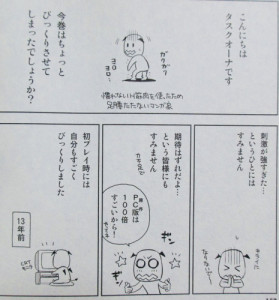 こんにちは
タスクオーナです
ガクガク
ヨロ〜
ヨロ〜
慣れないH筋肉を使ったため
足腰たたないマンガ家
今巻はちょっと
びっくりさせて
しまったでしょうか?
刺激が強すぎた…
というひとには
すみません
キライに
ならないで〜
期待はずれだよ…
という皆様にも
すみません
PC版は
100倍
すごいから!
初プレイ時には
自分もすごく
びっくりしました
13年前